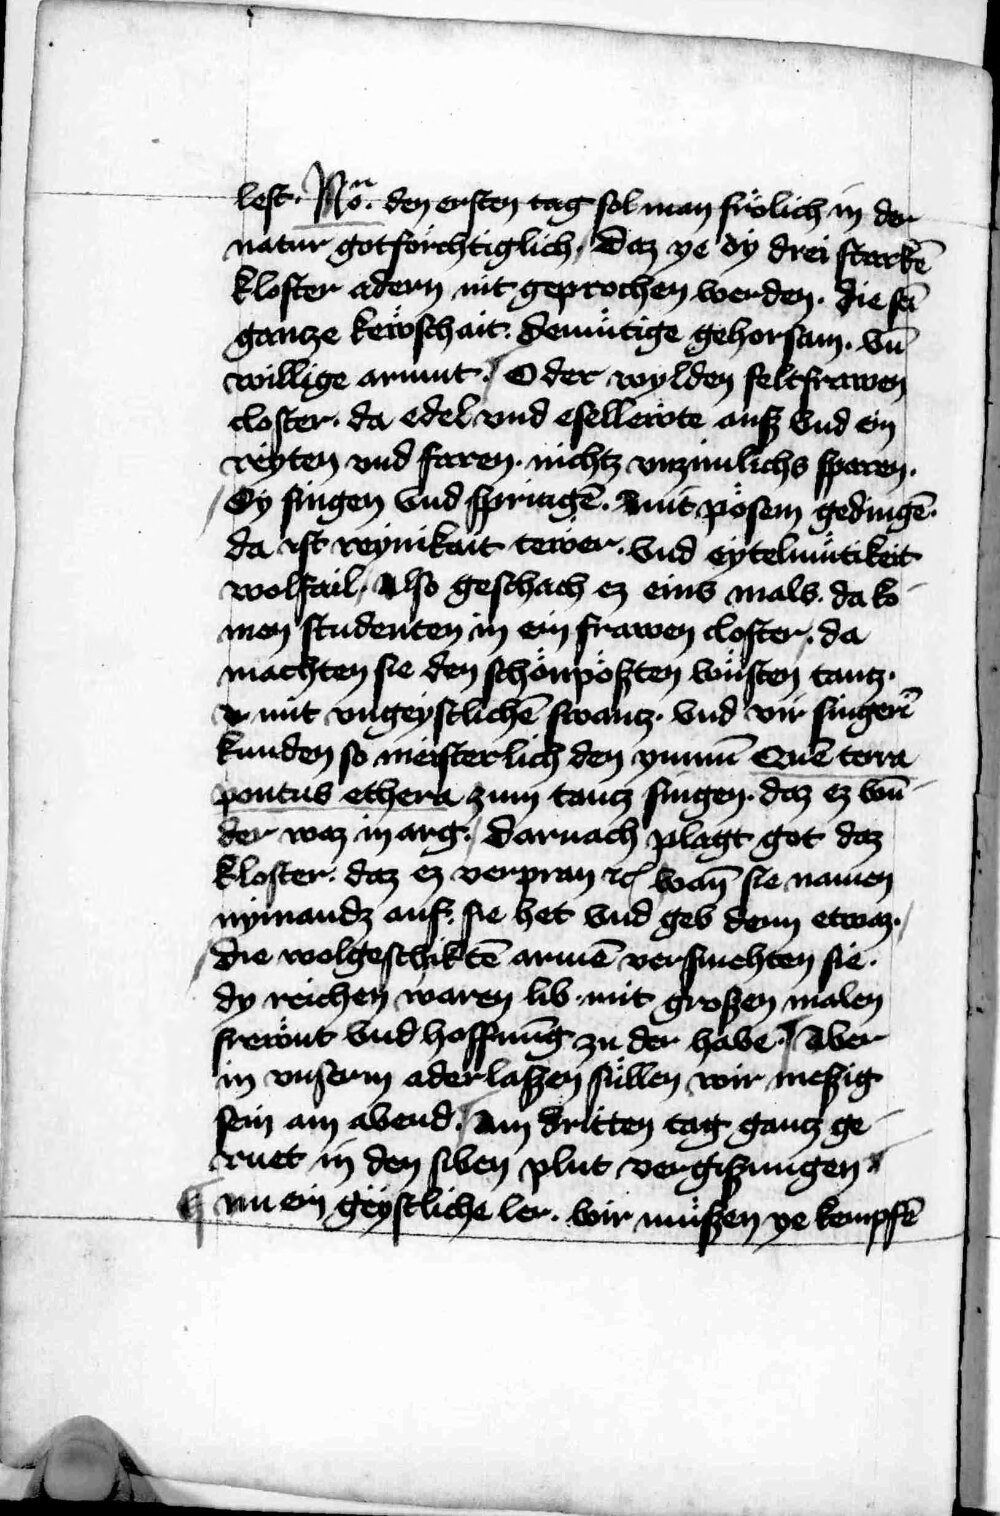 lest. No. den ersten tag sol man frölich in der
natur gotförchtiglich, Daz ye dy drei starkē
kloster adern nit geprochen werden. Die sei
gancze kewschait. demütige gehorsam. vn̄
willige armut. O der wylden feltfrawen
closter. da edel vnd esellewte auß vnd ein
reyten vnd faren. nichtz vnzimlichs sparen.
Dy singen vnd springē. mit pösem gedingē.
da ist reynikait tewer. vnd eytelmütikeit
wolfail, Also geschach ez eins mals. da ko
men studenten in ein frawen closter. da
machten sie den schönpößten wüsten tantz.
mit vngeystlichē swantz. vnd vir singerī
kunden so meisterlich den ymnū Quē terra
pontus ethera zum tantz singen. daz ez wū
der waz in arg. Darnach plagt got daz
kloster. daz ez verpran wan̄ sie namen
nymandz auf. sie het vnd geb denn etwaz.
die wolgeschiktē armē versmehten sie.
dy reichen waren lib. mit großen malen
frewnt vnd hoffnūg zu der habe. Aber
in vnserm aderlaßen süllen wir meßig
sein am abend. Am dritten tag gantz ge
ruet in den siben plut vergißungen
nu ein geystliche ler. wir müßen ye kempfē